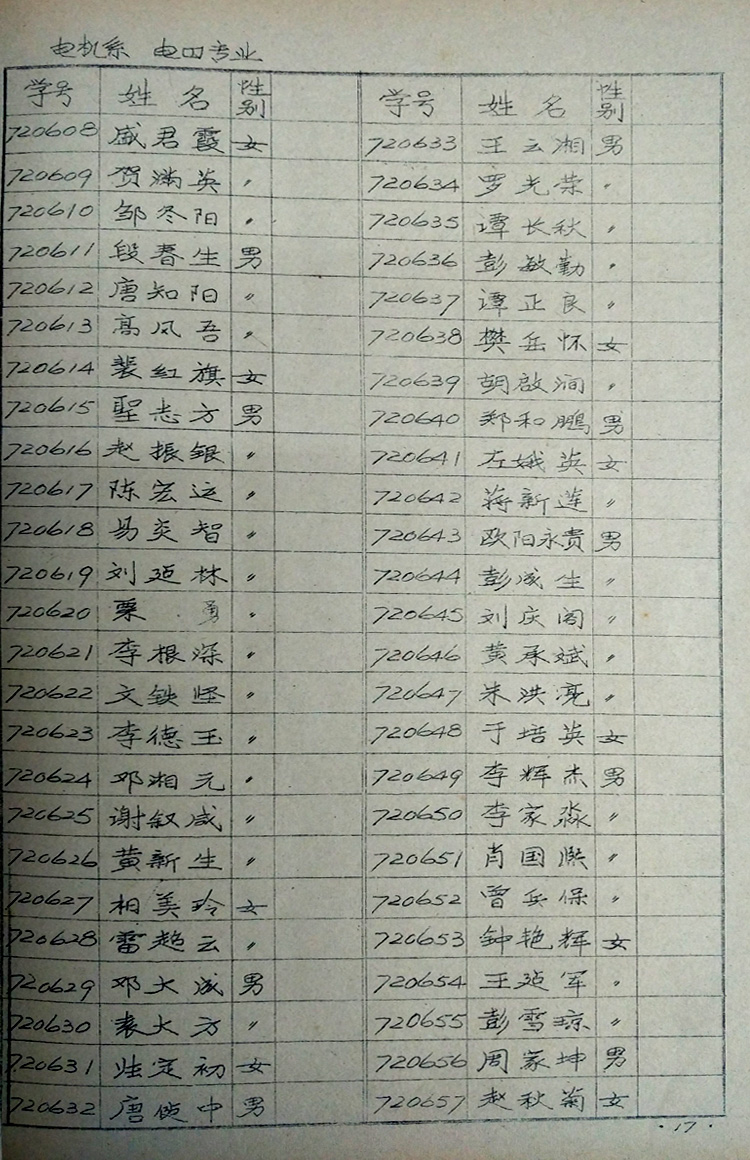 电机系 电四专业
学号 姓名 性别 学号 姓名 性别
720608 盛君霞 女 720633 王云湘 男
720609 贺满英 〃 720634 罗光荣 〃
720610 邹冬阳 〃 720635 谭长秋 〃
720611 段春生 男 720636 彭敏勤 〃
720612 唐知阳 〃 720637 谭正良 〃
720613 高风吾 〃 720638 樊岳怀 女
720614 裴红旗 女 720639 胡啟涧 〃
720615 聖志方 男 720640 郑和鹏 男
720616 赵振银 〃 720641 左娥英 女
720617 陈宏运 〃 720642 蒋新莲 〃
720618 易炎智 〃 720643 欧阳永贵 男
720619 刘廷林 〃 720644 彭成生 〃
720620 栗勇 〃 720645 刘庆阁 〃
720621 李根深 〃 720646 黄承斌 〃
720622 文铁坚 〃 720647 朱洪亮 〃
720623 李德玉 〃 720648 于培英 女
720624 邓湘元 〃 720649 李辉杰 男
720625 谢叙咸 〃 720650 李家淼 〃
720626 黄新生 〃 720651 肖国熙 〃
720627 相美玲 女 720652 曾兵保 〃
720628 雷超云 〃 720653 钟艳辉 女
720629 邓大成 男 720654 王延军 〃
720630 袁大方 〃 720655 彭雪琼 〃
720631 定初 女 720656 周家坤 男
720632 唐中 男 720657 赵秋菊 女
·17·